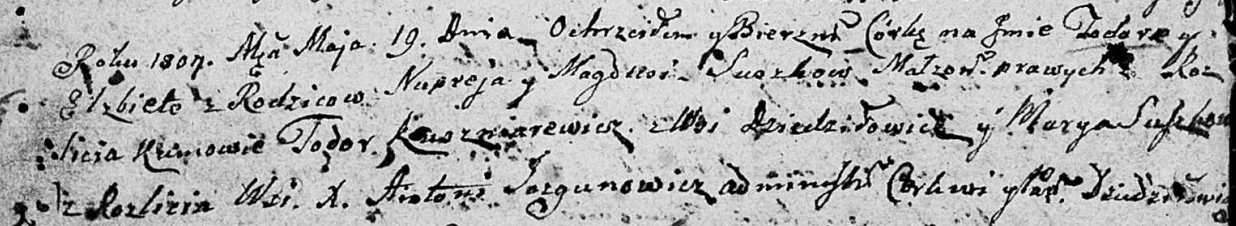 Roku 1807. Mca Maja. 19. Dnia Ochrzciłem y Bierzm. Córkę na Jmie Todorę y
Elzbietę z Rodzicow Nupreja y Magdaleni Suszkow Małżon. prawych z Roz
licia Kumowie Todor Kuszniarewicz. z Wsi Dziedziłowicz y Marya Suszkow
z Rozlicia Wsi. X. Antoni Jozgunowicz administ. Cerkwi par. Dziedziłowic